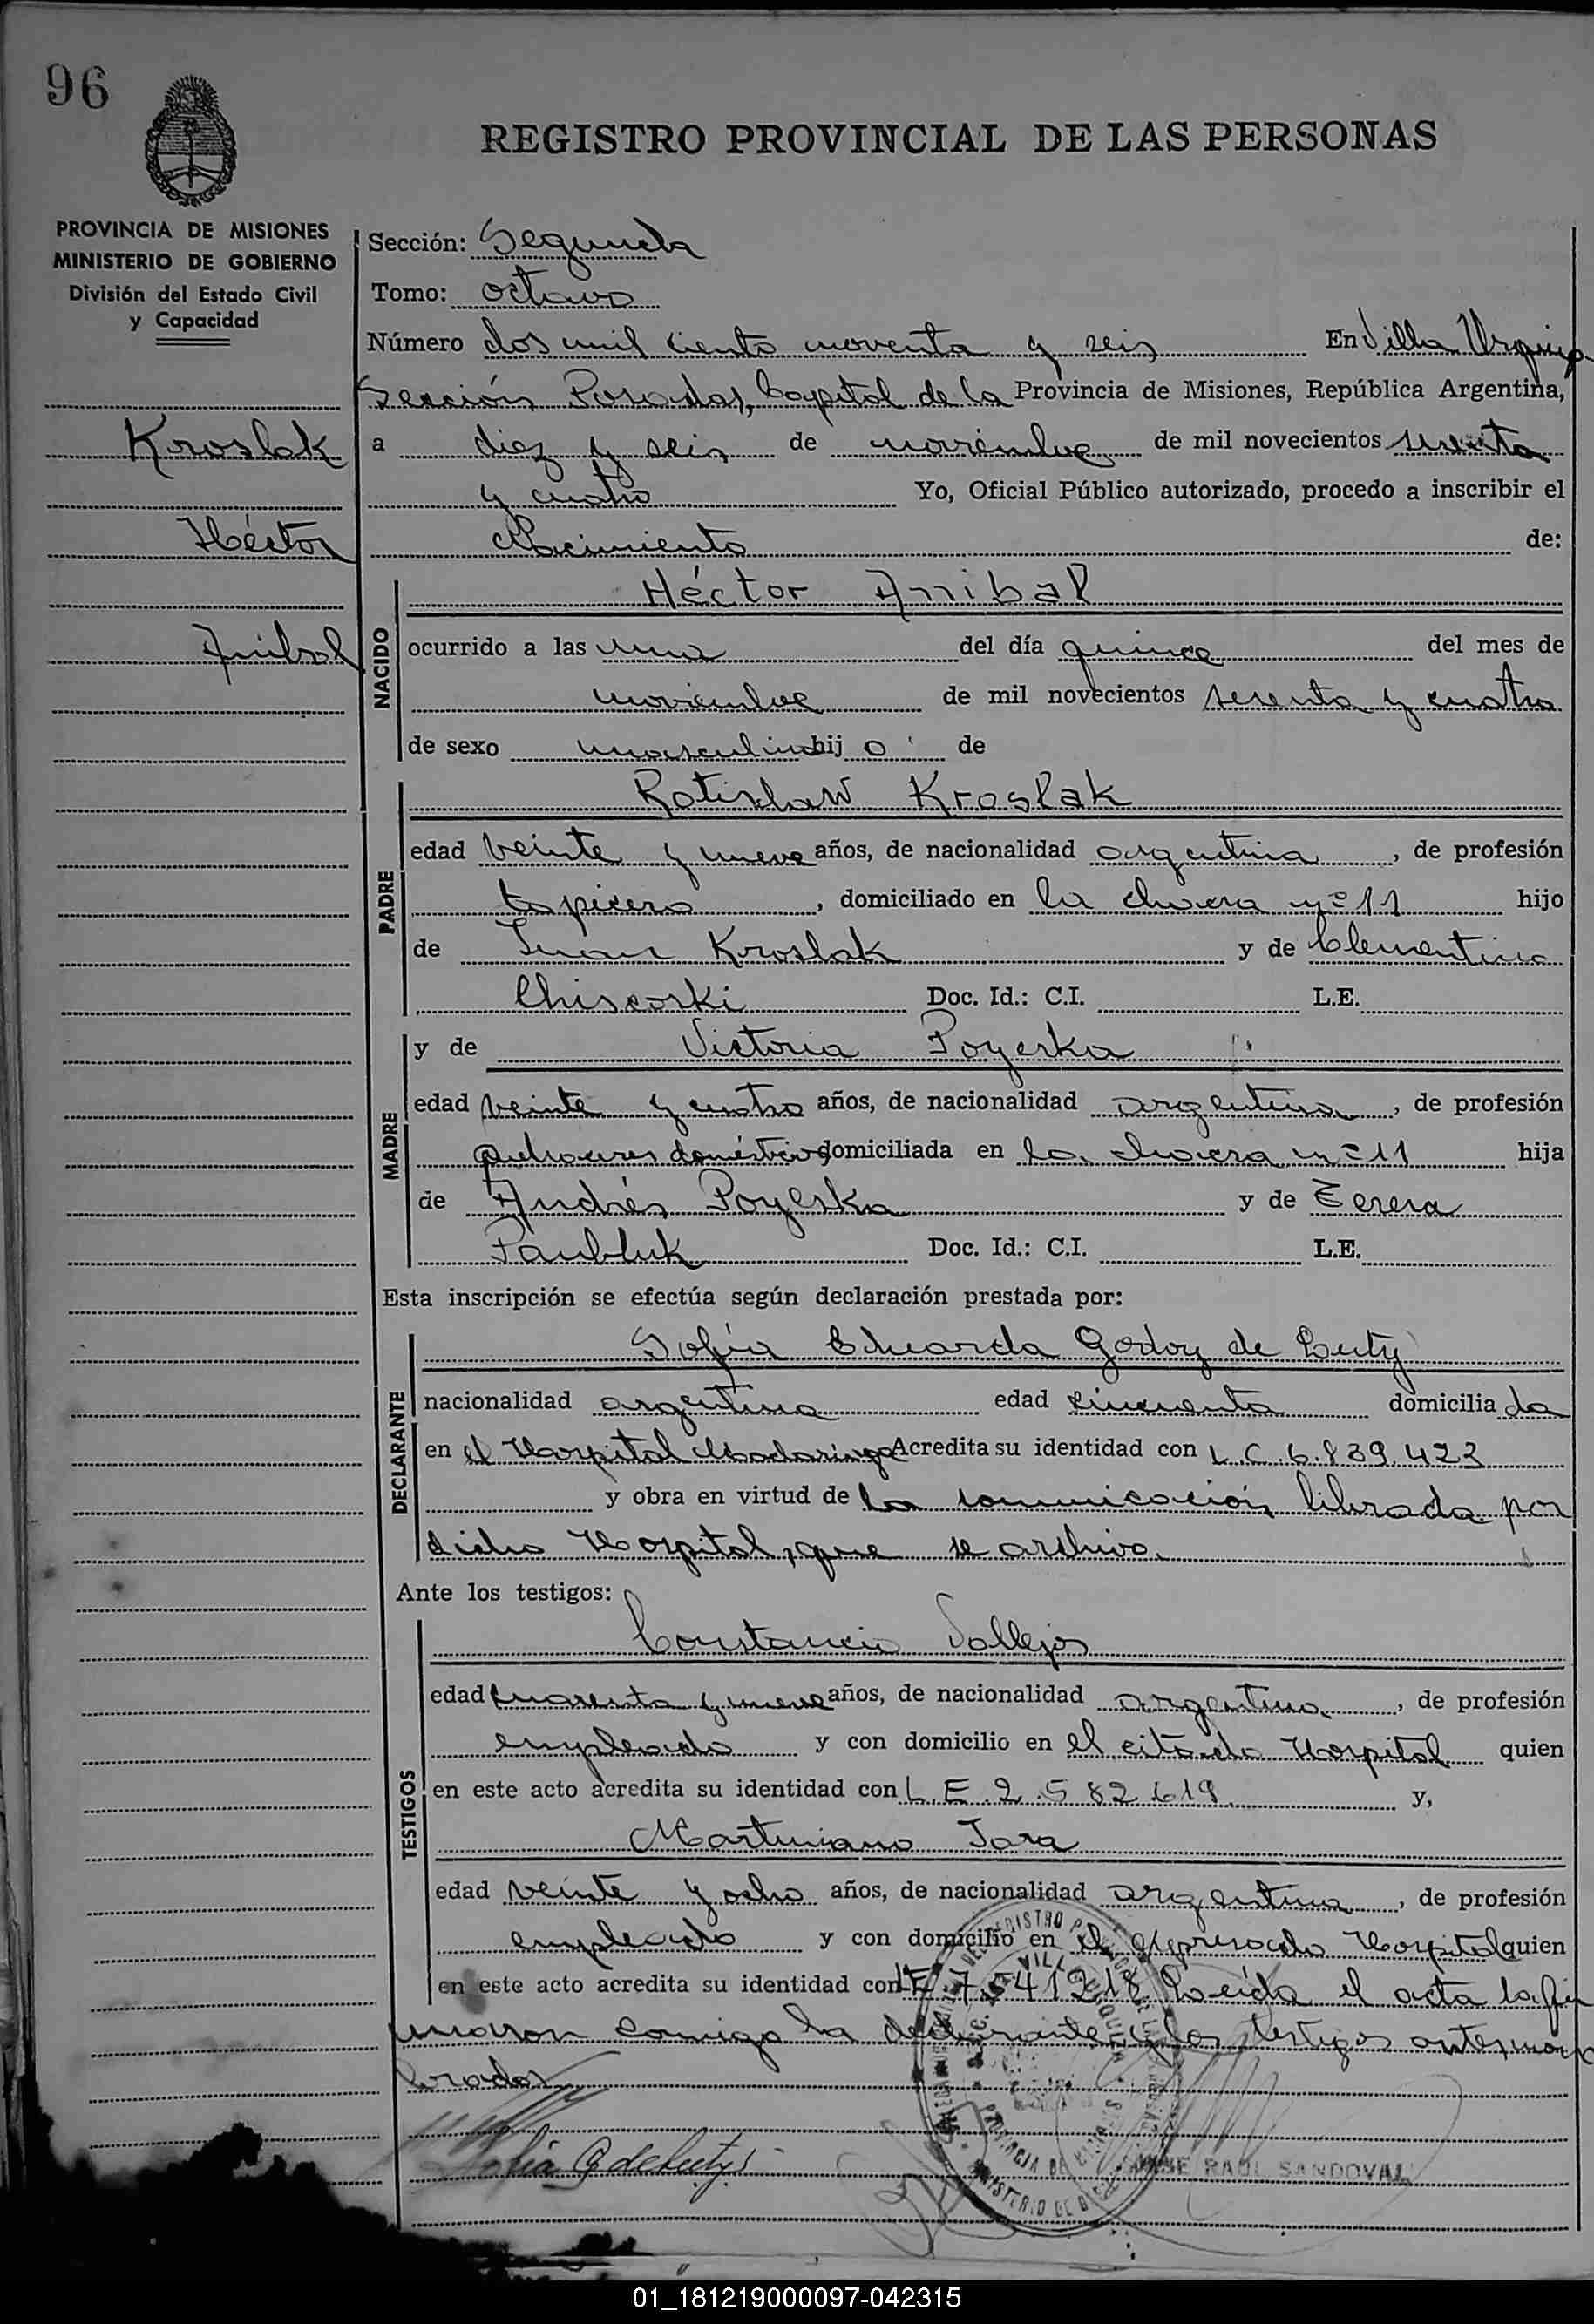 96
REGISTRO PROVINCIAL DE LAS PERSONAS
PROVINCIA DE MISIONES
MINISTERIO DE GOBIERNO
División del Estado Civil
y Capacidad
Kroslak
Héctor
Anibal
Sección: Segunda
Tomo: octavo
Número dos mil ciento noventa y seis En Villa Urquiza
Sección Posadas, Capital de la Provincia de Misiones, República Argentina,
a diez y seis de noviembre de mil novecientos sesenta
y cuatro Yo, Oficial Público autorizado, procedo a inscribir el
Nacimiento de:
NACIDO
Héctor Anibal
ocurrido a las una del día quince del mes de
noviembre de mil novecientos sesenta y cuatro
de sexo masculino hij o de
PADRE
Rotislaw Kroslak
edad veinte y nueve años, de nacionalidad argentina, de profesión
tapicero, domiciliado en la chacra nº 11 hijo
de Juan Kroslak y de Clementina
Chiscorki Doc. Id.: C.I. L.E.
MADRE
y de Victoria Poyeska
edad veinte y cuatro años, de nacionalidad argentina, de profesión
quehaceres domésticos domiciliada en la chacra nº 11 hija
de Andrés Poyeska y de Teresa
Paubluk Doc. Id.: C.I. L.E.
Esta inscripción se efectúa según declaración prestada por:
DECLARANTE
Sofía Eduarda Godoy de Luty
nacionalidad argentina edad cincuenta domicilia da
en el Hospital Madariaga Acredita su identidad con L.C. 6.839.423
y obra en virtud de la comunicación librada por
dicho Hospital, que se archiva.
Ante los testigos:
TESTIGOS
Constancio Vallejos
edad cuarenta y nueve años, de nacionalidad argentina, de profesión
empleado y con domicilio en el citado Hospital quien
en este acto acredita su identidad con L.E. 2.582.619 y,
Martiniano Jara
edad veinte y ocho años, de nacionalidad argentina, de profesión
empleado y con domicilio en el expresado Hospital quien
en este acto acredita su identidad con L.E. 7.541218 Leída el acta la fir
maron conmigo la declarante y los testigos antes nom
brados
Sofia G de Luty
RAUL SANDOVAL
01_181219000097-042315